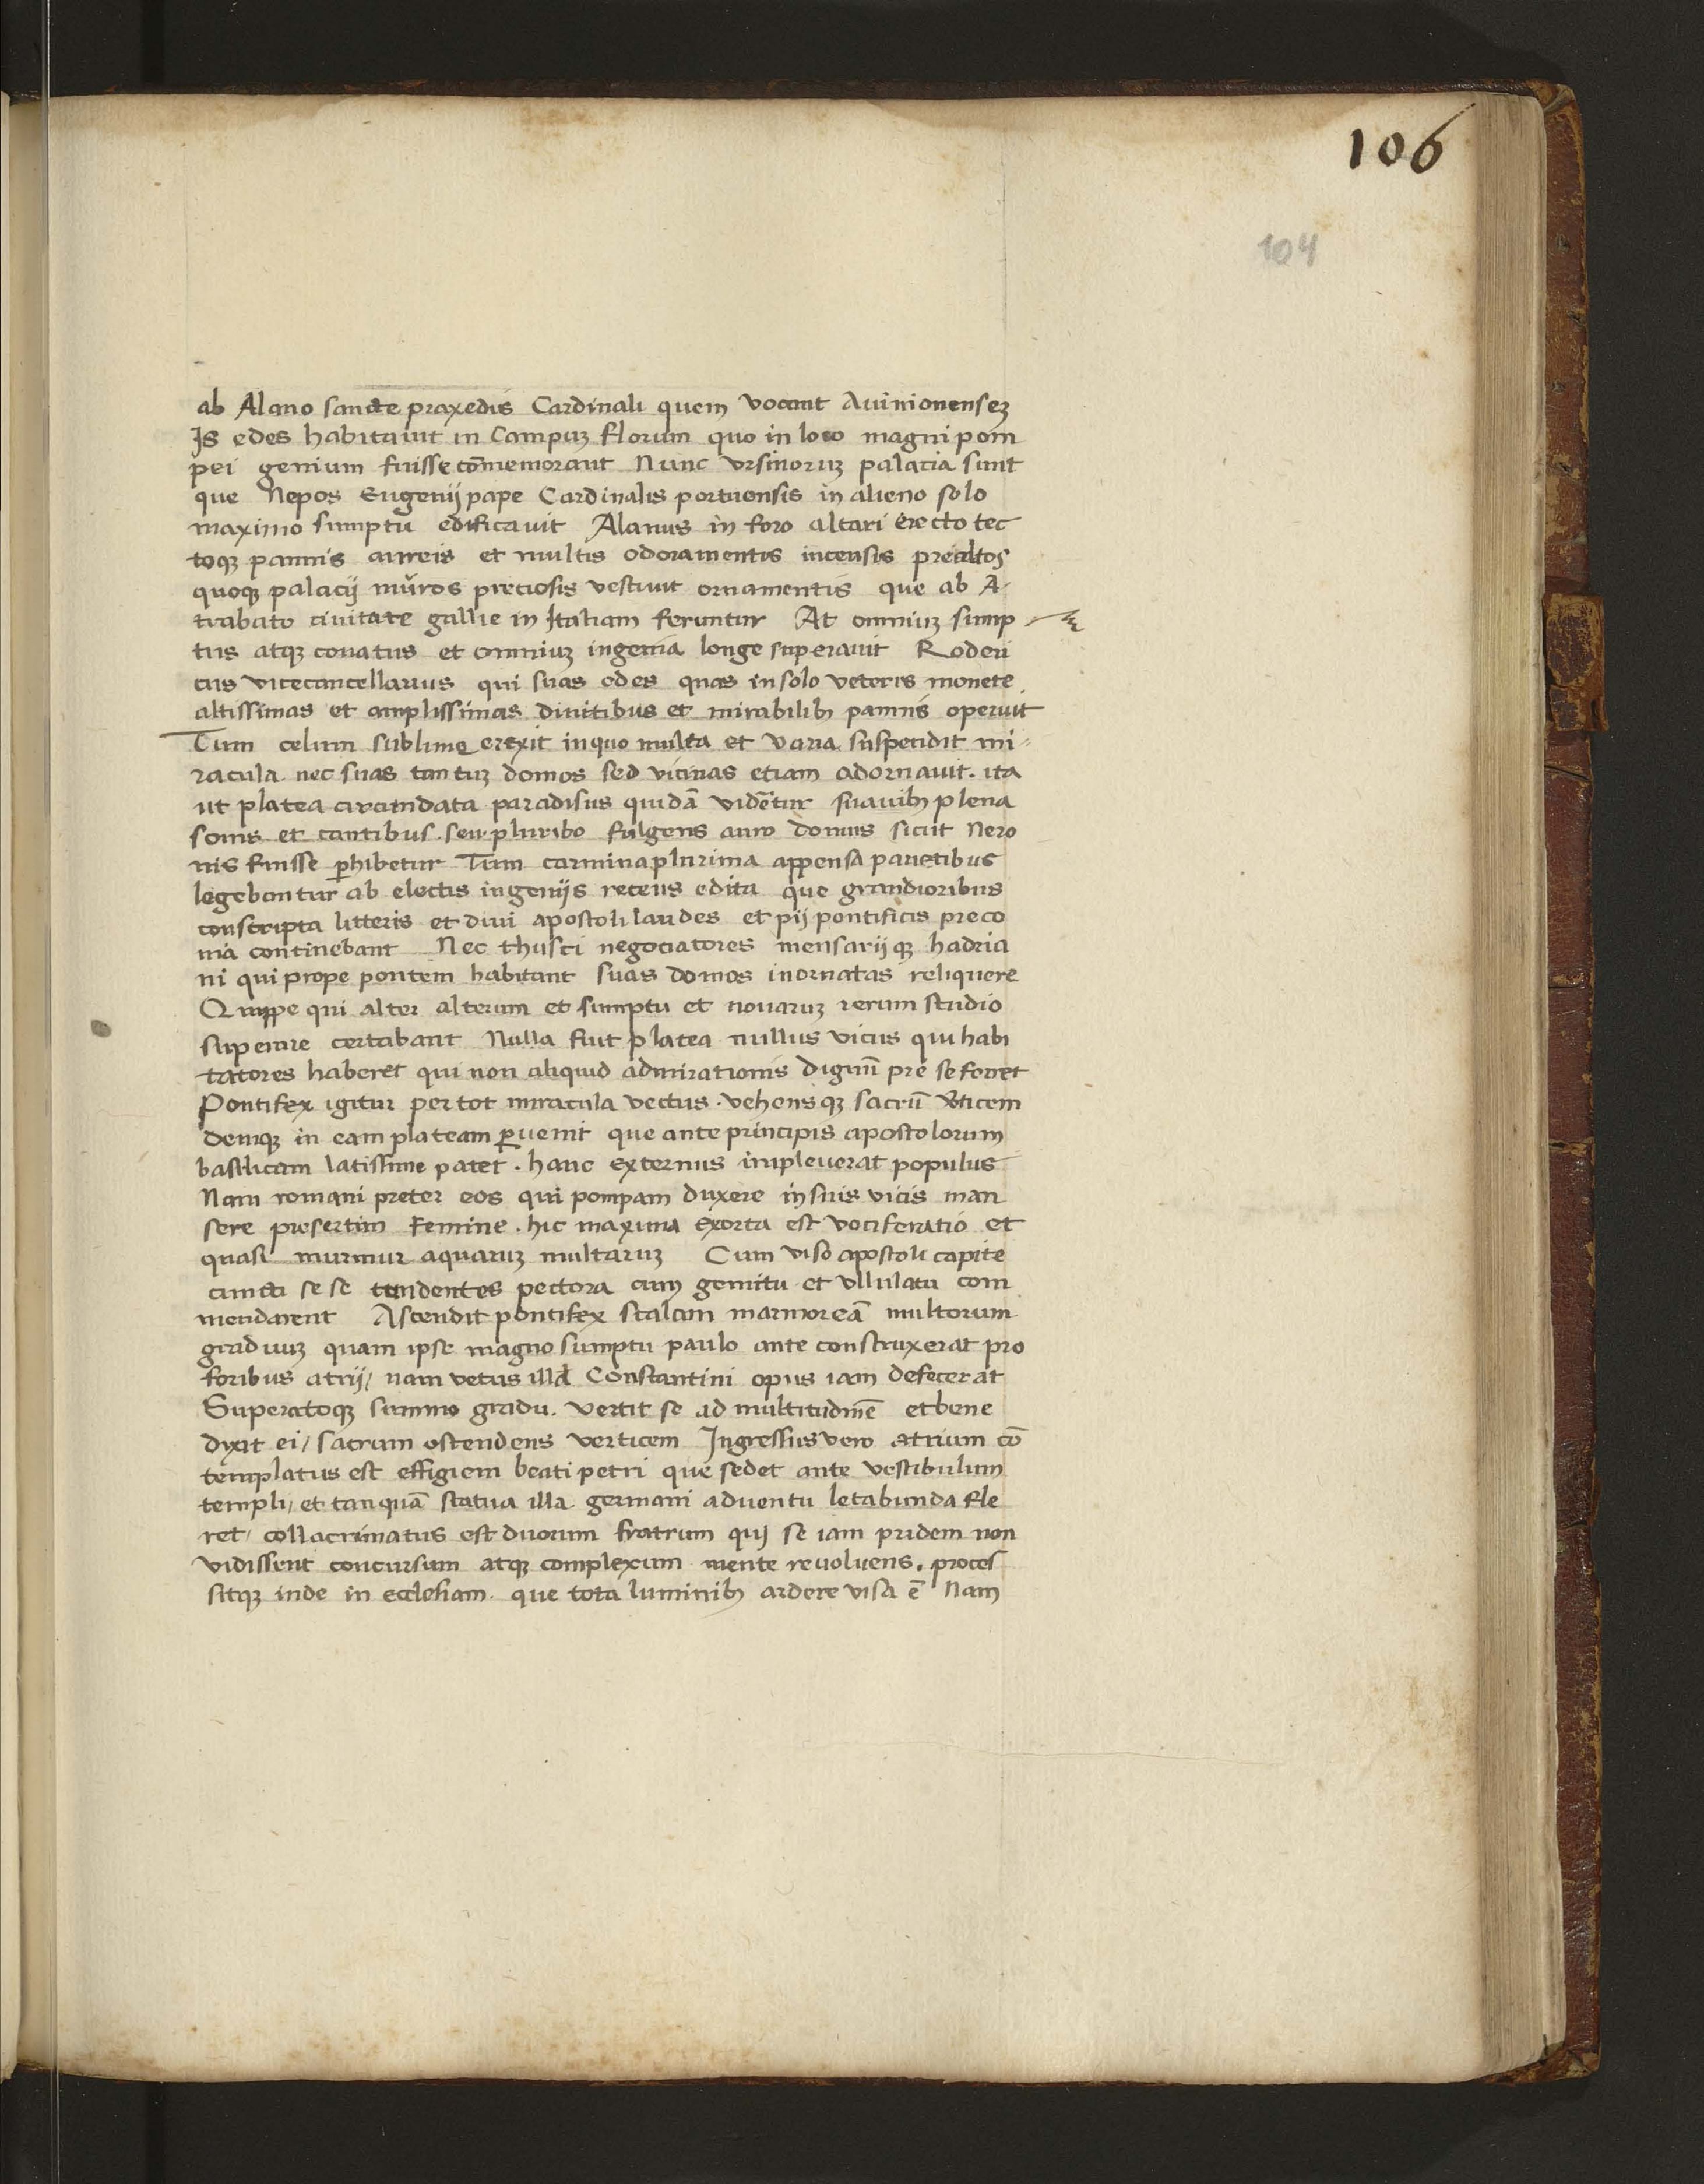 106
104
ab Alano sancte praxedis Cardinali quem vocant Avinionensez
Is edes habitavit in Campuz florum quo in loco magni pom
pei genium fuisse cōmemorant Nunc ursinoruz palacia sunt
que Nepos Eugenij pape Cardinalis portuensis in alieno solo
maximo sumptu edificavit Alanus in foro altari erecto tec
toqꝫ pannis aureis et multis odoramentis incensis prealtos
quoqꝫ palacij muros preciosis vestivit ornamentis que ab A-
trabato civitate gallie in Italiam feruntur At omniuz sump
tus atqꝫ conatus et omniuz ingenia longe superavit Roderi
cus vicecancellarius qui suas edes quas in solo veteris monete
altissimas et amplissimas divitibus et mirabilibꝫ pannis operuit
Tum celum sublime erexit in quo multa et varia suspendit mi
racula nec suas tantuz domos sed vicinas etiam adornavit. ita
ut platea circundata paradisus quidā vidētur suavibꝫ plena
sonis et cantibus seu pluribo fulgens auro domus sicut Nero
nis fuisse ꝑhibetur Tum carmina plurima appensa parietibus
legebantur ab electis ingenijs recens edita que grandioribus
conscripta litteris et divi apostoli laudes et pij pontificis preco
nia continebant Nec thusci negociatores mensarijqꝫ hadria
ni qui prope pontem habitant suas domos inornatas reliquere
Quippe qui alter alterum et sumptu et novaruz rerum studio
superare certabant Nulla fuit platea nullus vicus qui habi
tatores haberet qui non aliquid admirationis dignū pre se ferret
Pontifex igitur per tot miracula vectus. vehensqꝫ sacrū v̄ticem
demqꝫ in eam plateam ꝑvenit que ante principis apostolorum
basilicam latissime patet. hanc externus impleverat populus
Nam romani preter eos qui pompam duxere in suis vicis man
sere presertim femine. hic maxima exorta est vociferatio et
quasi murmur aquaruz multaruz Cum viso apostoli capite
cuncti se se tundentes pectora cum gemitu et ullulatu com
mendarent Ascendit pontifex scalam marmoreā multorum
graduuz quam ipse magno sumptu paulo ante construxerat pro
foribus atrij/ nam vetus illud Constantini opus iam defecerat
Superatoqꝫ summo gradu. vertit se ad multitudinē et bene
dyxit ei/ sacrum ostendens verticem Ingressus vero atrium cō
templatus est effigiem beati petri que sedet ante vestibulum
templi/ et tanquā statua illa germani adventu letabunda fle
ret/ collacrimatus est duorum fratrum quj se iam pridem non
vidissent concursum atqꝫ complexum mente revolvens. proces
sitqꝫ inde in ecclesiam. que tota luminibꝫ ardere visa ē Nam